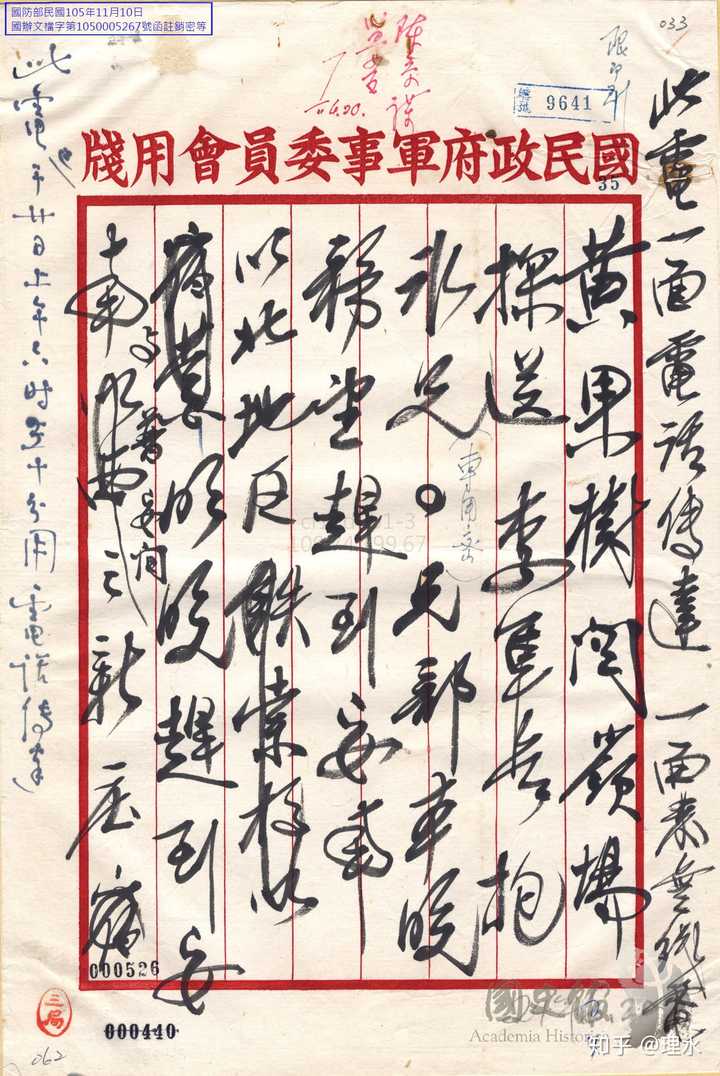 國防部民國105年11月10日
國辦文檔字第1050005267號函註銷密等
033
6.20.
編號 9641
國民政府軍事委員會用牋
35
此電一面電話傳達一面發無線電
黃果樹関嶺場
探送李軍長抱
冰兄○兄部本晚
務望趕到安南
以北地區鉄索橋
宿營明晚趕到安
與普安間
南以西之新店宿
此電已于廿日上午六時五十分用電話傳達
000526
三局
000440
062
國史館
Academia Historica
知乎 @理水